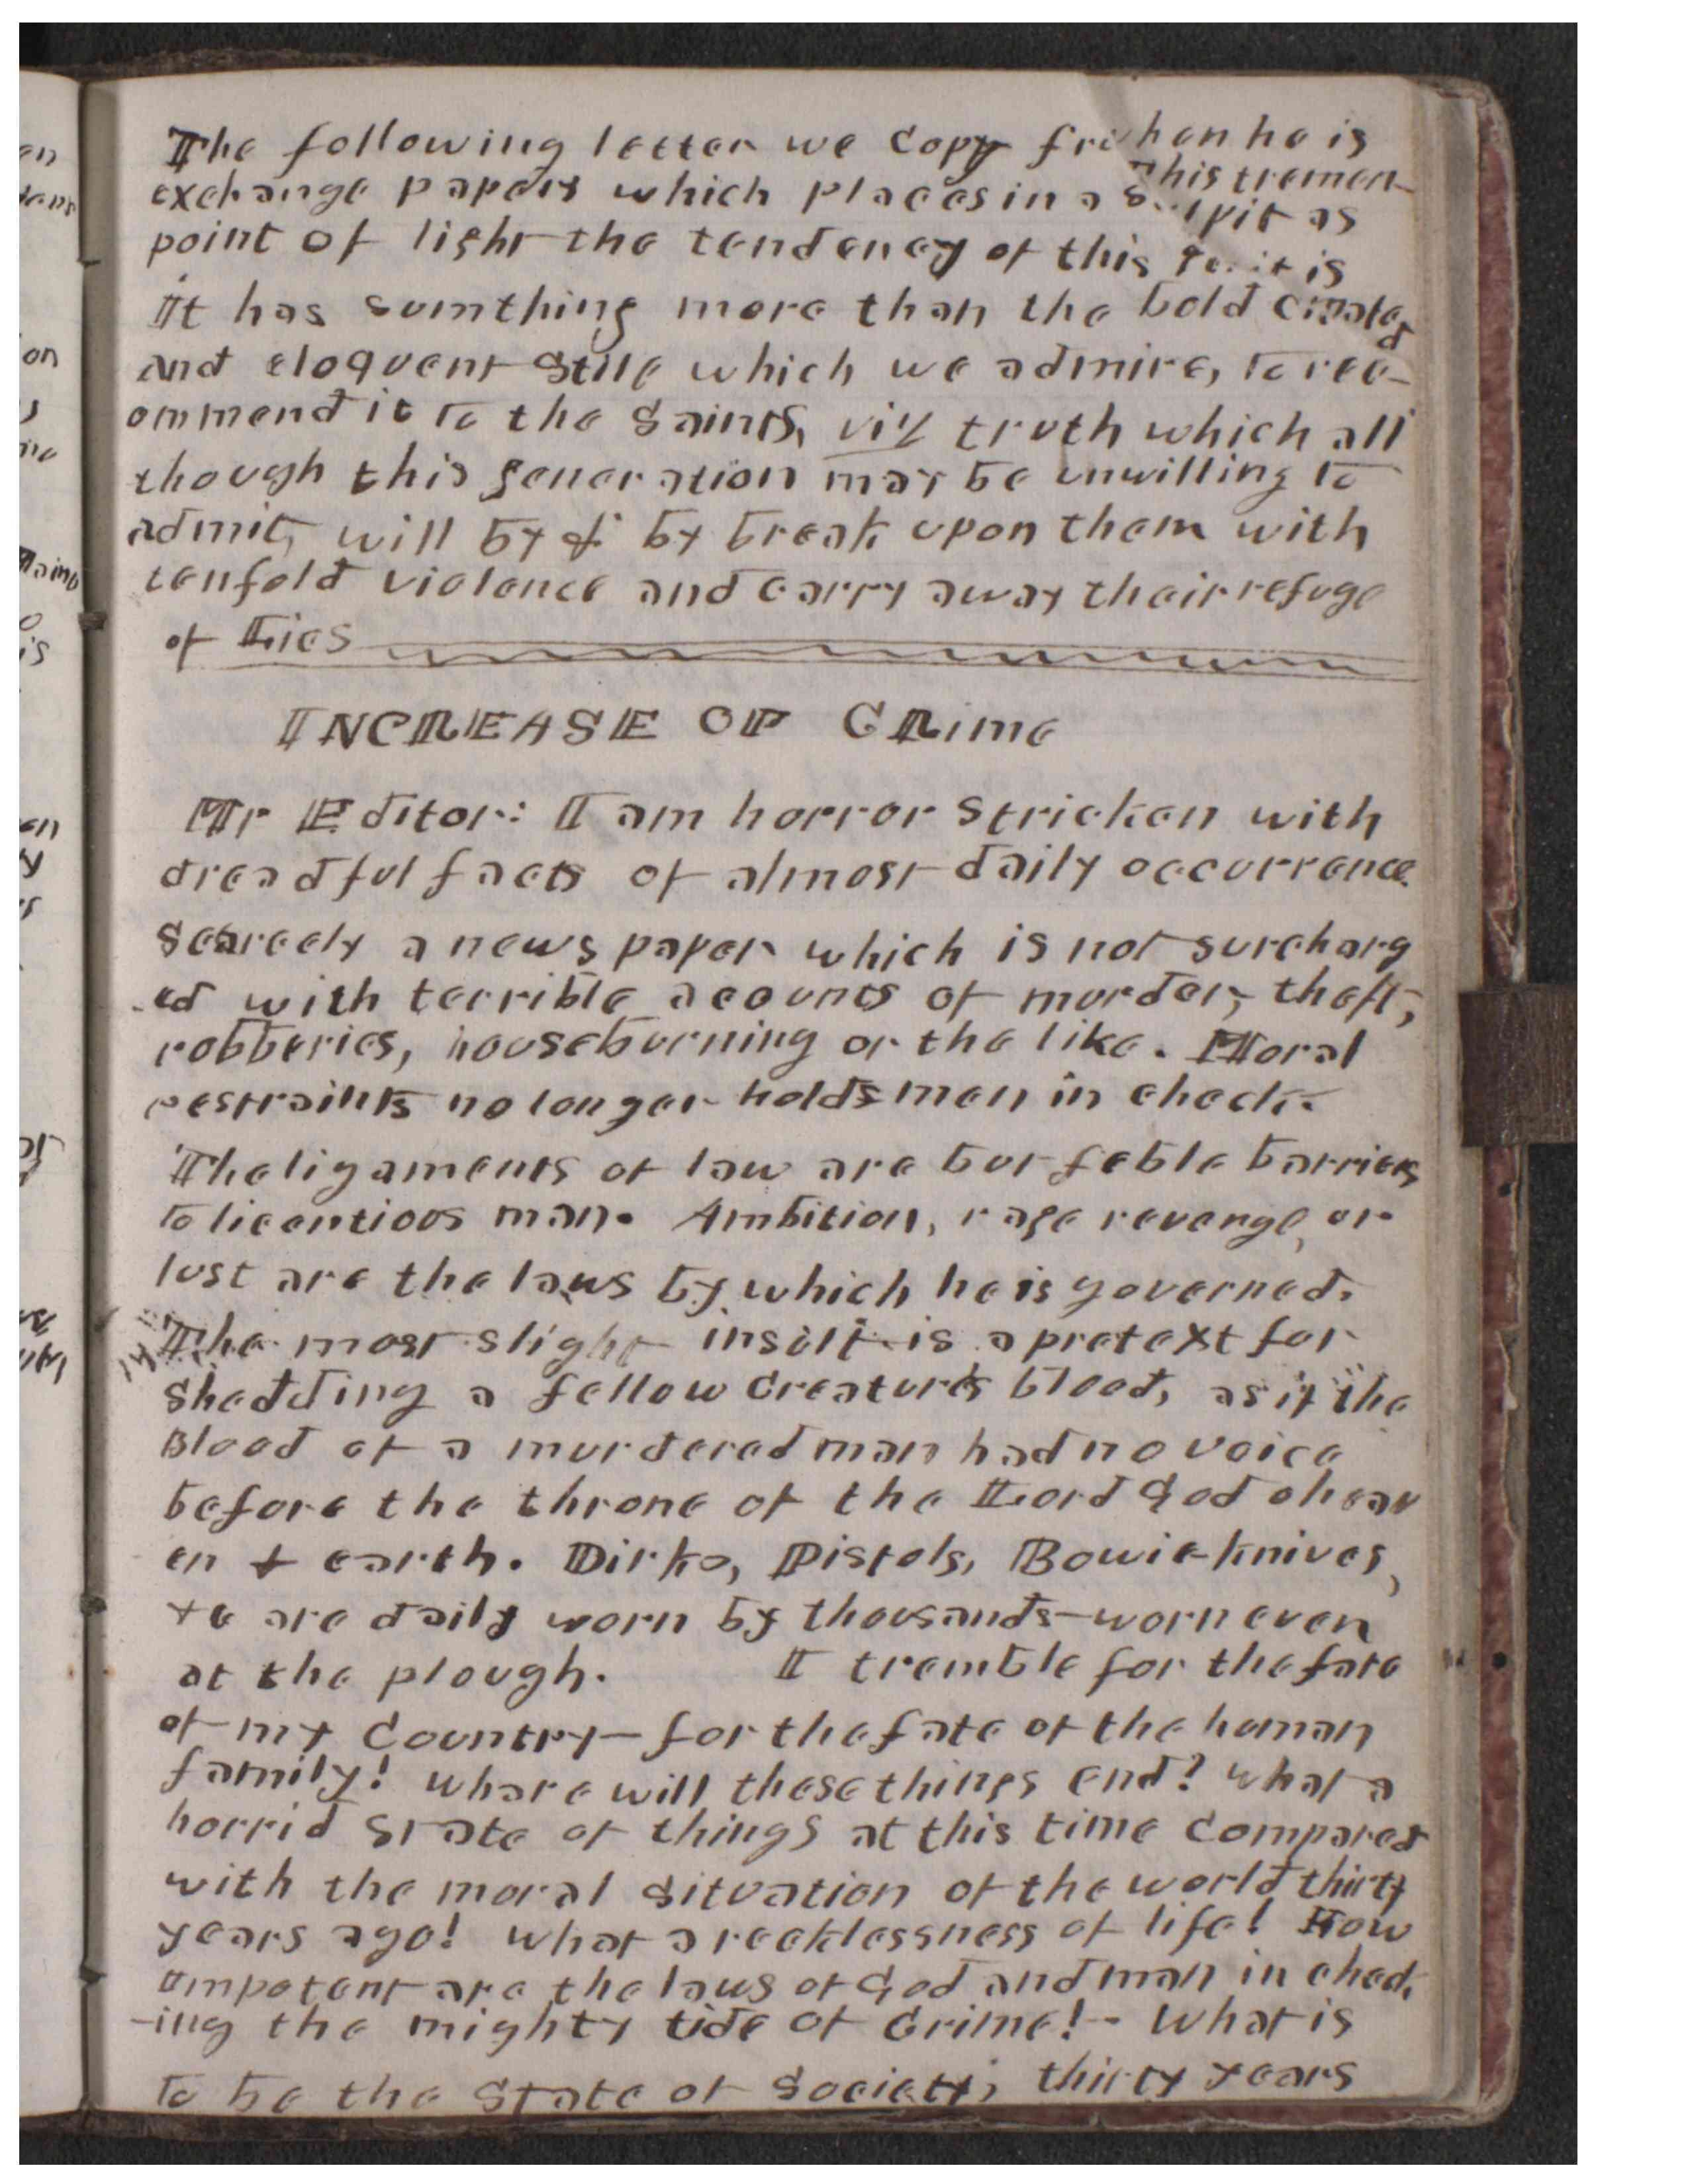 The following letter we copy fr hen he is
exchange papers which places in a s this tremen-
point of light the tendency of this pit as
it is
It has sumthing more than the bold
and eloquent stile which we admire, to rec-
ommend it to the Saints, viz truth which all
though this generation may be unwilling to
admit, will by & by break upon them with
tenfold violence and carry away their refuge
of Lies
INCREASE OF CRime
Mr Editor: I am horror stricken with
dreadful facts of almost daily occurrence
Scarcely a news paper which is not surcharg
-ed with terrible acounts of murder, theft,
robberies, houseburning or the like. Moral
restraints no longer holds men in check.
The ligaments of law are but feble barriers
to licentious man. Ambition, rage revenge, or
lust are the laws by which he is governed.
The most slight insult is a pretext for
shedding a fellow creature's blood, as if the
Blood of a murdered man had no voice
before the throne of the Lord God of heav
en & earth. Dirks, Pistols, Bowie-knives,
&c are daily worn by thousands-worn even
at the plough. I tremble for the fate
of my Country-for the fate of the human
family! where will these things end? what a
horrid state of things at this time compared
with the moral situation of the world thirty
years ago! what a recklessness of life! How
impotent are the laws of God and man in check
-ing the mighty tide of Crime!- What is
to be the State of Society, thirty years
on
on
is